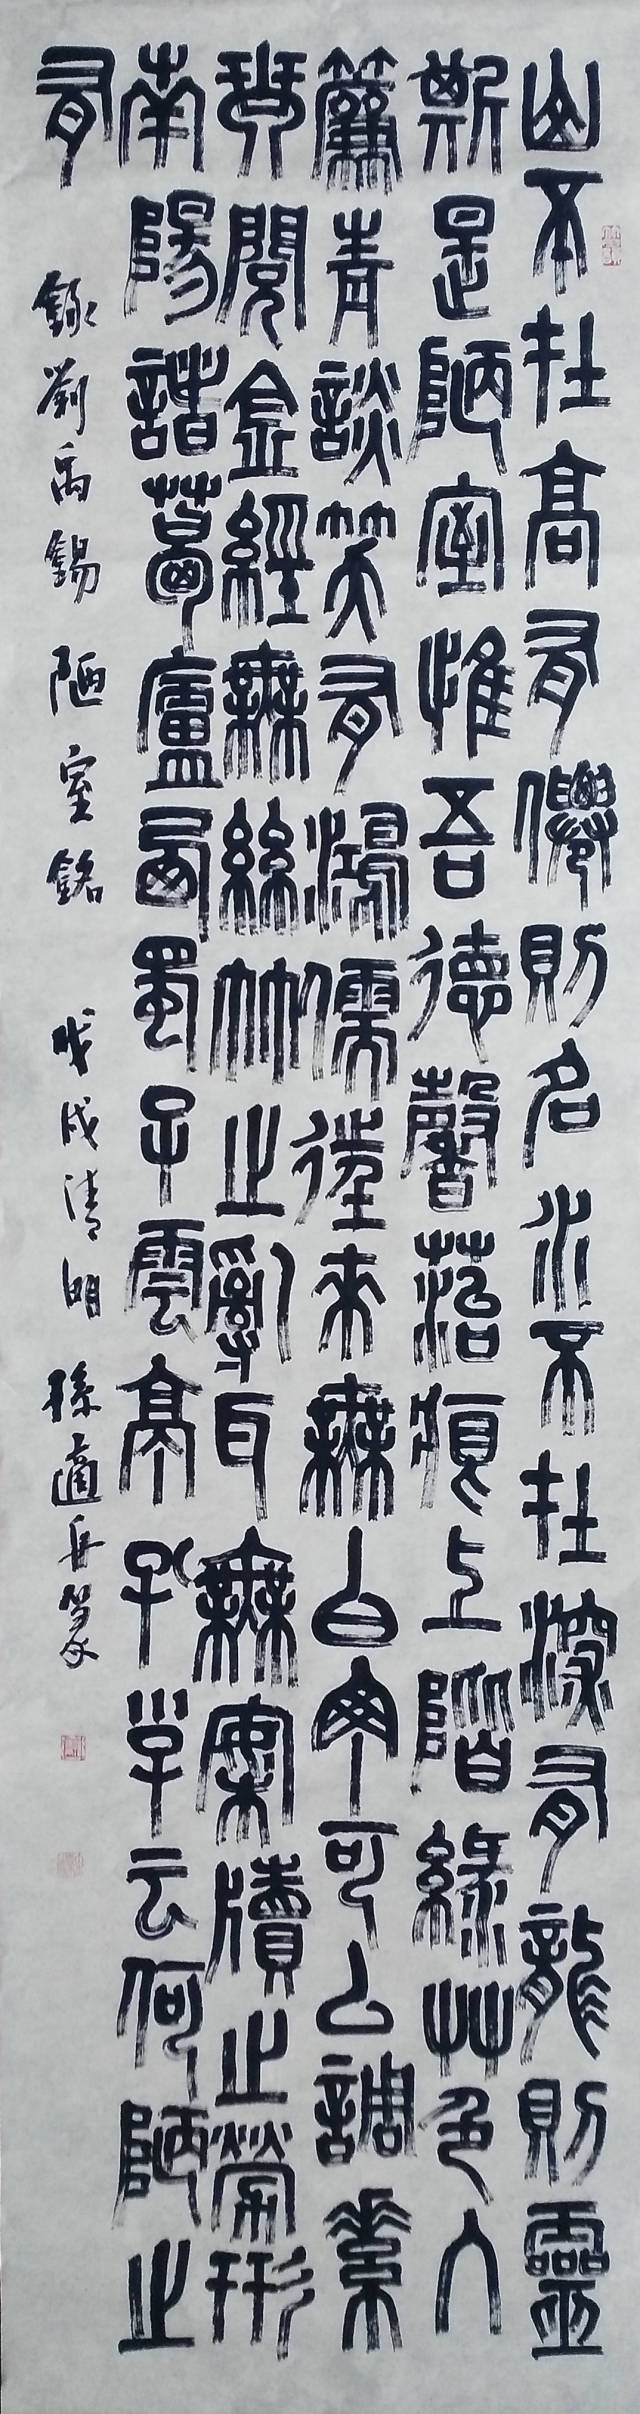 山不在高有僊則名水不在深有龍則靈
斯是陋室惟吾德馨菭痕上階綠艸色入
簾青談笑有鴻儒往來無白丁可以調素
琴閱金經無絲竹之亂耳無案牘之勞形
南陽諸葛廬西蜀子雲亭孔子云何陋之
有 錄劉禹錫陋室銘 戊戌清明 孫適篆